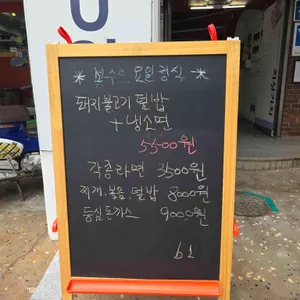 * 봉수르 요일정식 *
돼지불고기 덮밥
+ 냉소면
5500원
각종라면 3500원
찌개.볶음 덮밥 8000원
등심돈까스 9000원
b1